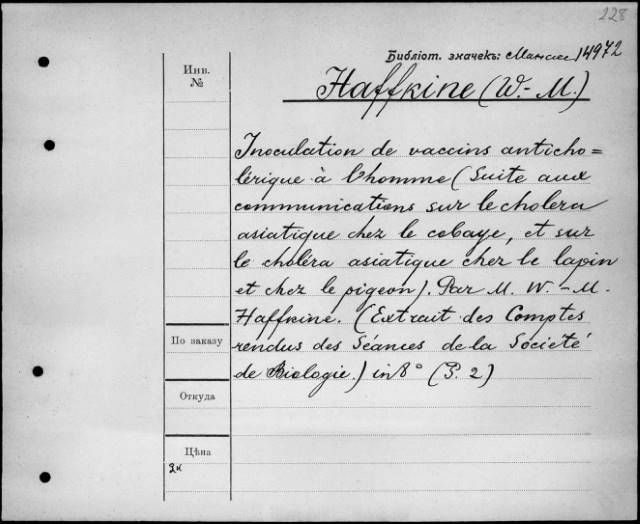 228
Библіот. значекъ: 14972
Инв.
№
Haffkine (W.-M.)
Inoculation de vaccins anticho=
lérique à l'homme (Suite aux
communications sur le cholera
asiatique chez le cobaye, et sur
le choléra asiatique chez le lapin
et chez le pigeon). Par M. W.-M.
Haffkine. (Extrait des Comptes
rendus des Séances de la Société
de Biologie.) in 8° (P. 2)
По заказу
Откуда
Цѣна